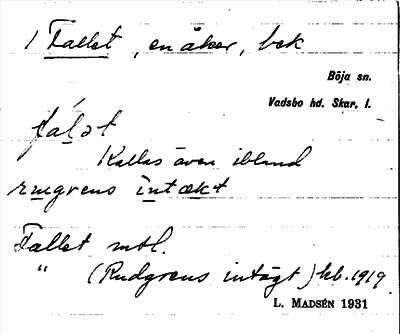 1 Fallet, en åker, bek
Böja sn.
Vadsbo hd. Skar. l.
falət
Kallas även ibland
rɯgrens intækt
Fallet mtl.
" (Rudgrens intägt) hb. 1919
L. MADSÉN 1931